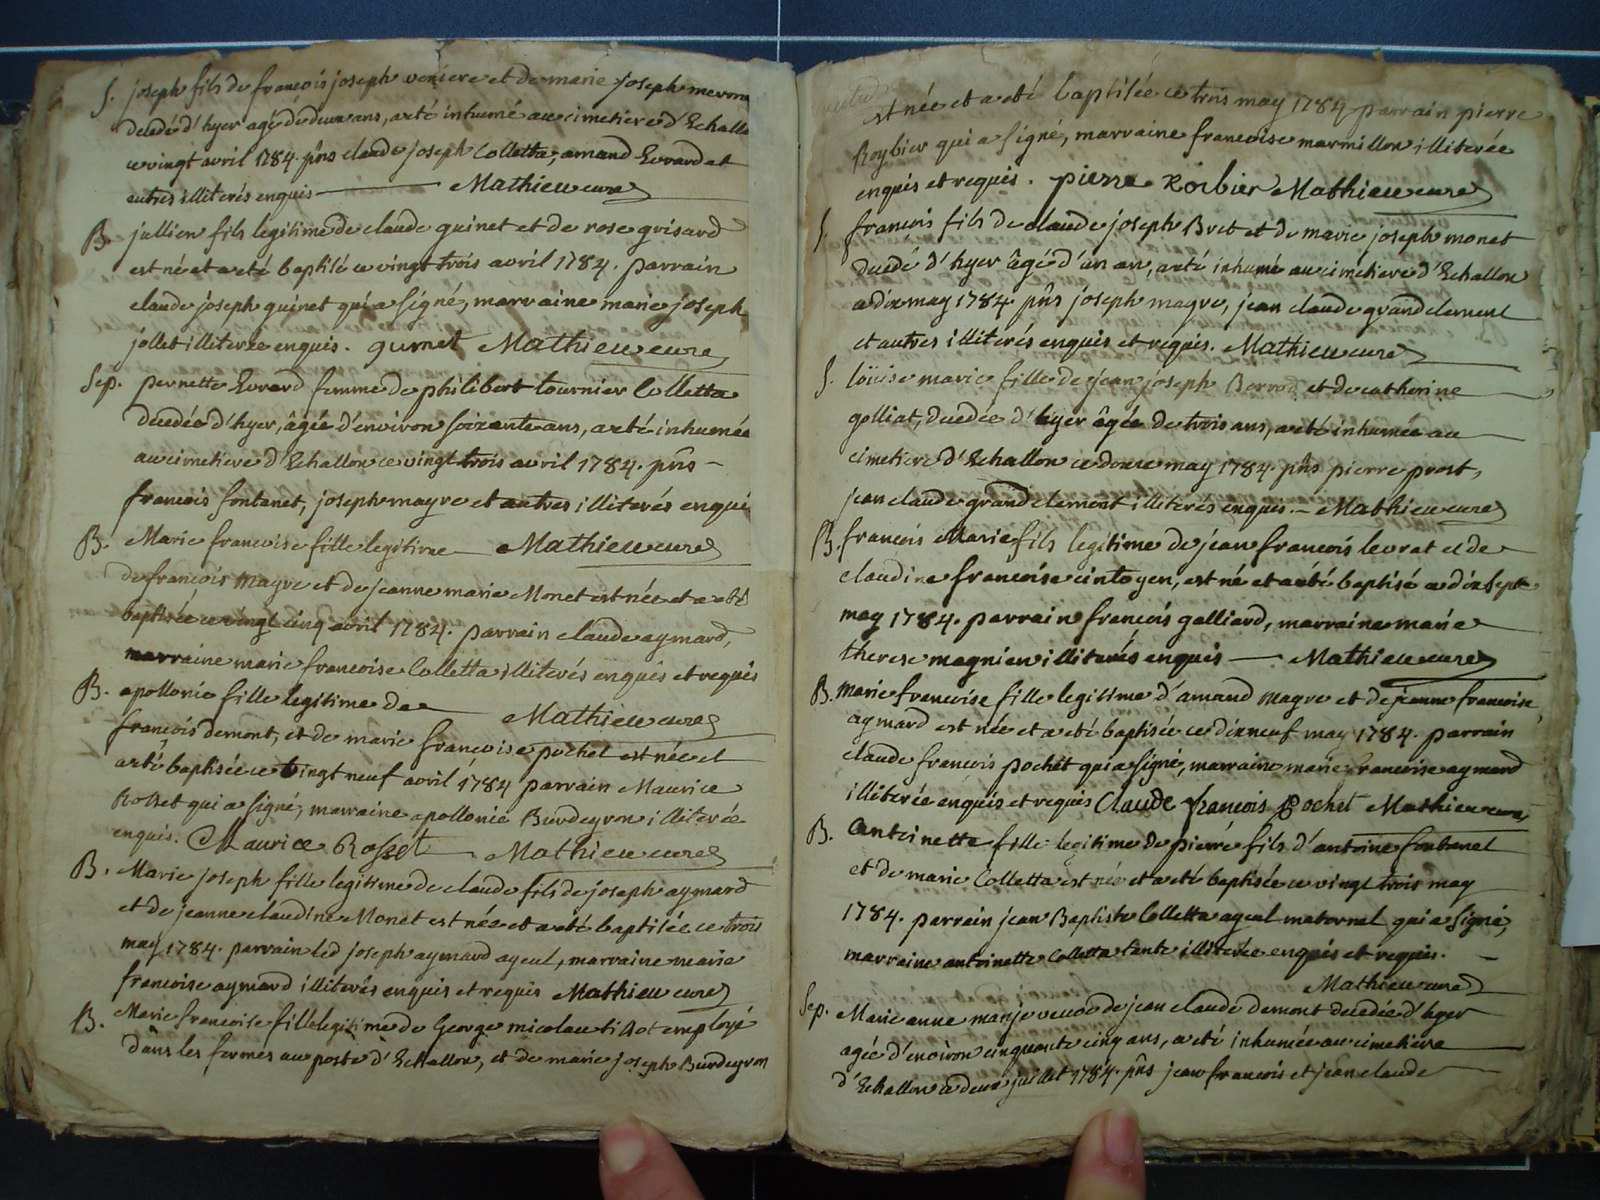 S. joseph fils de francois joseph veniere et de marie joseph
decedé d'hyer agé de deux ans, a eté inhumé au cimetiere d'Echallo
ce vingt avril 1784. pns claude joseph Colletta, amand Evrard et
autres illiterés enquis Mathieu curé
B. jullien fils legitime de claude guinet et de rose grisard
est né et a eté baptisé ce vingt trois avril 1784. parrain
claude joseph guinet qui a signé, marraine marie joseph
jollet illiterée enquis. guinet Mathieu curé
Sep. pernette Evrard femme de philibert tournier Colletta
decedée d'hyer, âgée d'environ soixante ans, a eté inhumée
au cimetiere d'Echallon ce vingt trois avril 1784. pns
francois fontanet, joseph mayre et autres illiterés enquis
B. Marie francoise fille legitime Mathieu curé
de francois mayre et de jeanne marie Monet est née et a eté
baptisée ce vingt cinq avril 1784. parrain claude aymard,
marraine marie francoise Colletta illiterés enquis et requis
B. apollonie fille legitime de Mathieu curé
francois demont, et de marie francoise pochet est née et
a eté baptisée ce vingt neuf avril 1784 parrain Maurice
Rosset qui a signé, marraine apollonie Burdeyron illiterée
enquis. Maurice Rosset Mathieu curé
B. Marie joseph fille legitime de claude fils de joseph aymard
et de jeanne claudine Monet est née et a eté baptisée ce trois
may 1784. parrain led joseph aymard ayeul, marraine marie
francoise aymard illiterés enquis et requis Mathieu curé
B. Marie francoise fille legitime de George micolau employé
dans les fermes au poste d'Echallon, et de marie joseph Burdeyron
est née et a eté baptisée ce trois may 1784 parrain pierre
Roybier qui a signé, marraine francoise marmillon illiterée
enquis et requis. pierre Roibier Mathieu curé
S. françois fils de claude joseph Bret et de marie joseph monet
decedé d'hyer âgé d'un an, a eté inhumé au cimetiere d'Echallon
ce dix may 1784 pns joseph mayre, jean claude grandclement
et autres illiterés enquis et requis. Mathieu curé
S. loüise marie fille de jean joseph Berrod et de catherine
golliat, decedée d'hyer âgée de trois ans, a eté inhumée au
cimetiere d'Echallon ce douze may 1784. pns pierre prost,
jean claude grand clement illiterés enquis. Mathieu curé
B. francois Marie fils legitime de jean francois levrat et de
claudine francoise cintoyen, est né et a eté baptisé ce dix sept
may 1784. parrain francois galliard, marraine marie
therese magnien illiterés enquis Mathieu curé
B. Marie francoise fille legitime d'amand mayre et de jeanne francoise
aymard est née et a eté baptisée ce dix neuf may 1784. parrain
claude francois pochet qui a signé, marraine marie francoise aymard
illiterée enquis et requis Claude françois Pochet Mathieu curé
B. Antoinette fille legitime de pierre fils d'antoine fontanel
et de marie Colletta est née et a eté baptisée ce vingt trois may
1784. parrain jean Baptiste Colletta ayeul maternel qui a signé,
marraine antoinette Colletta tante illiterée enquis et requis.
Mathieu curé
Sep. Marie anne manje veuve de jean claude demont decedée d'hyer
agée d'environ cinquante cinq ans, a eté inhumée au cimetiere
d'Echallon ce deux juillet 1784. pns jean francois et jean claude